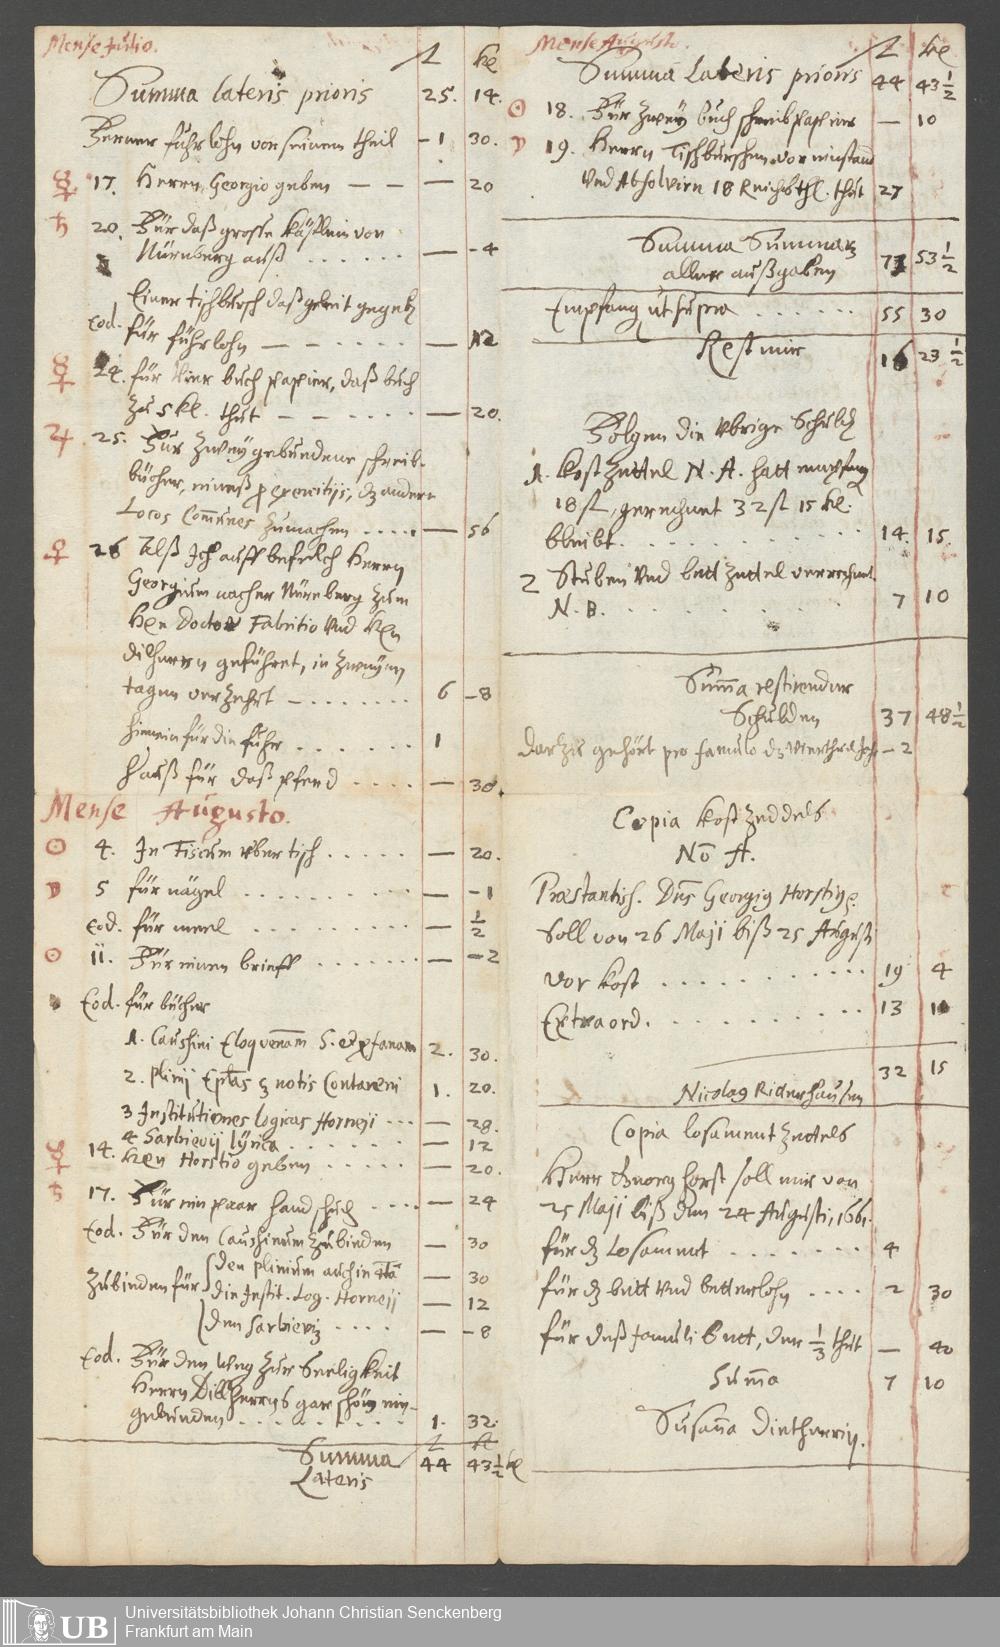 Mense Julio.
fl kr
Summa lateris prioris 25. 14.
Ferner fuhrlohn von seinem theil - 1 30.
☿ 17. Herrn Georgio geben — — — 20
♄ 20. Für daß grosse Kästlein von
Nürnberg auß . . . . . . — - 4
Einer tischbursch daß geleit gegeb
Eod. für führlohn — - . . . . . — 12
☿ 24. für vier buch papier, daß buch
zu 5 kr. thut — — . . . . — 20.
♃ 25. Für zwey gebundene schreib-
bücher, eines p exercitijs, dz andere
Locos Com̄unes zumachen . . . . . — 56
♀ 26 Alß Ich auff befelch Herrn
Georgium nacher Nürnberg zum
Hen Doctor Fabritio vnd Hen
Dilherrn geführet, in zweyen
tagen verzehrt — . . . . . . . 6 - 8
hinein für die fuhr . . . . . . 1
hauß für daß pferd . . . . — 30
Mense Augusto.
☉ 4. In Fiscum vber tisch . . . . . — 20.
☽ 5 für nägel . . . . . . . — - 1
eod. für meel . . . . . . . . — 1/2
☉ 11. Für einen brieff . . . . . . . — - 2
Eod. für bücher
1. Caussini Eloquentiam S. et profanam 2. 30.
2. Plinij Eptas c notis Contareni 1. 20.
3 Institutiones logicas Horneji . . . — 28.
4 Sarbievij lyrica . . . . . . . — 12
☿ 14. Hen Horstio geben . . . . . — 20.
♄ 17. Für ein paar handschuh . . . . — 24
Eod. Für den Caussinum zubinden — 30
den Plinium auch in 4to — 30
zubinden für die Instit. Log. Horneij — 12
den Sarbievij . . . . — - 8
Eod. Für den Weg zur Seeligkeit
Herrn Dilherrns gar schön ein-
gebunden . . . . . . . . . . 1. 32.
fl kr
Summa 44 43 1/2 kr
Lateris
Mense Augusto.
fl kr
Summa Lateris prioris 44 43 1/2
☉ 18. Für zwey buch schreibpapier — 10
☽ 19. Herrn Tischburschen vor einstand
vnd Absolvirn 18 Reichsthl. thut 27
Summa Summarum
aller außgaben 71 53 1/2
Empfang ut supra . . . . . . 55 30
Rest mir 16 23 1/2
Folgen die vbrige Schuld
1. Kost Zettel N. A. hatt empfang
18 fl, gerechnet 32 fl 15 kr.
bleibt . . . . . . . . . . 14. 15.
2 Stuben vnd bett Zettel verrechnet
N. B. . . . . . . . . 7 10
Sum̄a restirender
Schulden 37 48 1/2
darzu gehört pro famulo dz Vierthel Jahr - 2
Copia Kost Zeddels
No A.
Præstantiss. Dns Georgig Horstig
Soll von 26 Maji biß 25 August
vor kost . . . . . . . . . . 19 4
Extraord. . . . . . . . . . 13 11
32 15
Nicolag Riderßhausen
Copia losament Zettels
Herr Georg Horst soll mir von
25 Maji biß den 24 Augusti, 1661.
für dz Losament . . . . . . . 4
für dz bett vnd bettenlohn . . . . 2 30
für deß famuli bett, der 1/3 thut — 40
Sum̄a 7 10
Susan̄a Dietherrin.
Universitätsbibliothek Johann Christian Senckenberg
UB Frankfurt am Main